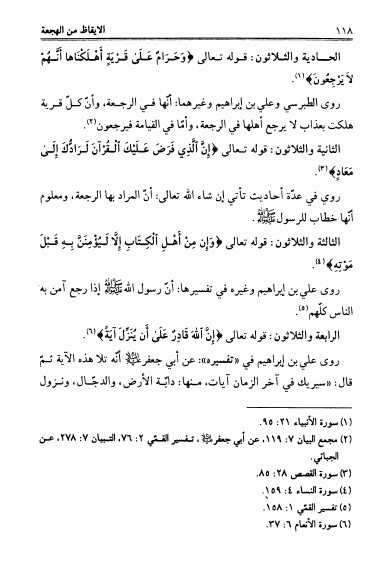 ١١٨ الايقاظ من الهجعة
الحادية والثلاثون: قوله تعالى ﴿وَحَرَامٌ عَلَىٰ قَرْيَةٍ أَهْلَكْنَاهَا أَنَّهُمْ
لَا يَرْجِعُونَ﴾(١).
روى الطبرسي وعلي بن إبراهيم وغيرهما: أنّها في الرجعة، وأنّ كلّ قرية
هلكت بعذاب لا يرجع أهلها في الرجعة، وأمّا في القيامة فيرجعون(٢).
الثانية والثلاثون: قوله تعالى ﴿إِنَّ الَّذِي فَرَضَ عَلَيْكَ الْقُرْآنَ لَرَادُّكَ إِلَىٰ
مَعَادٍ﴾(٣).
روي في عدّة أحاديث تأتي إن شاء الله تعالى: أنّ المراد بها الرجعة، ومعلوم
أنّها خطاب للرسول ﷺ.
الثالثة والثلاثون: قوله تعالى ﴿وَإِن مِنْ أَهْلِ الْكِتَابِ إِلَّا لَيُؤْمِنَنَّ بِهِ قَبْلَ
مَوْتِهِ﴾(٤).
روى علي بن إبراهيم وغيره في تفسيرها: أنّ رسول الله ﷺ إذا رجع آمن به
الناس كلّهم(٥).
الرابعة والثلاثون: قوله تعالى ﴿إِنَّ اللهَ قَادِرٌ عَلَىٰ أَن يُنَزِّلَ آيَةً﴾(٦).
روى علي بن إبراهيم في «تفسيره»: عن أبي جعفر ﵇ أنّه تلا هذه الآية ثمّ
قال: «سيريك في آخر الزمان آيات، منها: دابّة الأرض، والدجّال، ونزول
(١) سورة الأنبياء ٢١: ٩٥.
(٢) مجمع البيان ٧: ١١٩، عن أبي جعفر ﵇، تفسير القمّي ٢: ٧٦، التبيان ٧: ٢٧٨، عن
الجبائي.
(٣) سورة القصص ٢٨: ٨٥.
(٤) سورة النساء ٤: ١٥٩.
(٥) تفسير القمّي ١: ١٥٨.
(٦) سورة الأنعام ٦: ٣٧.